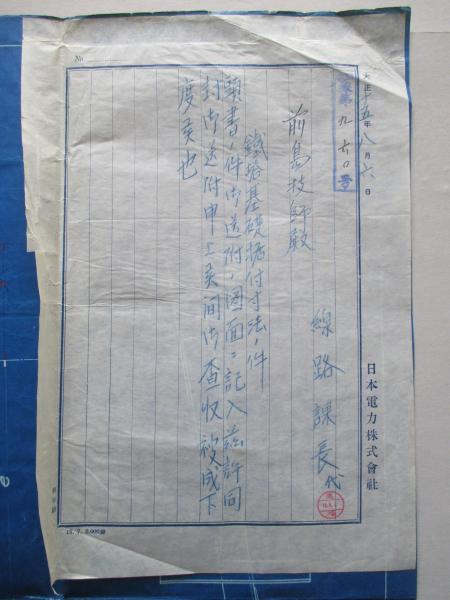 大正十五年八月六日
第九六〇号
日本電力株式會社
線路課長代
前島技師殿
鐵塔基礎据付寸法ノ件
頭書ノ件御送附ノ図面ニ記入茲許同
封御送附申上候間御査収被成下
度候也
No.